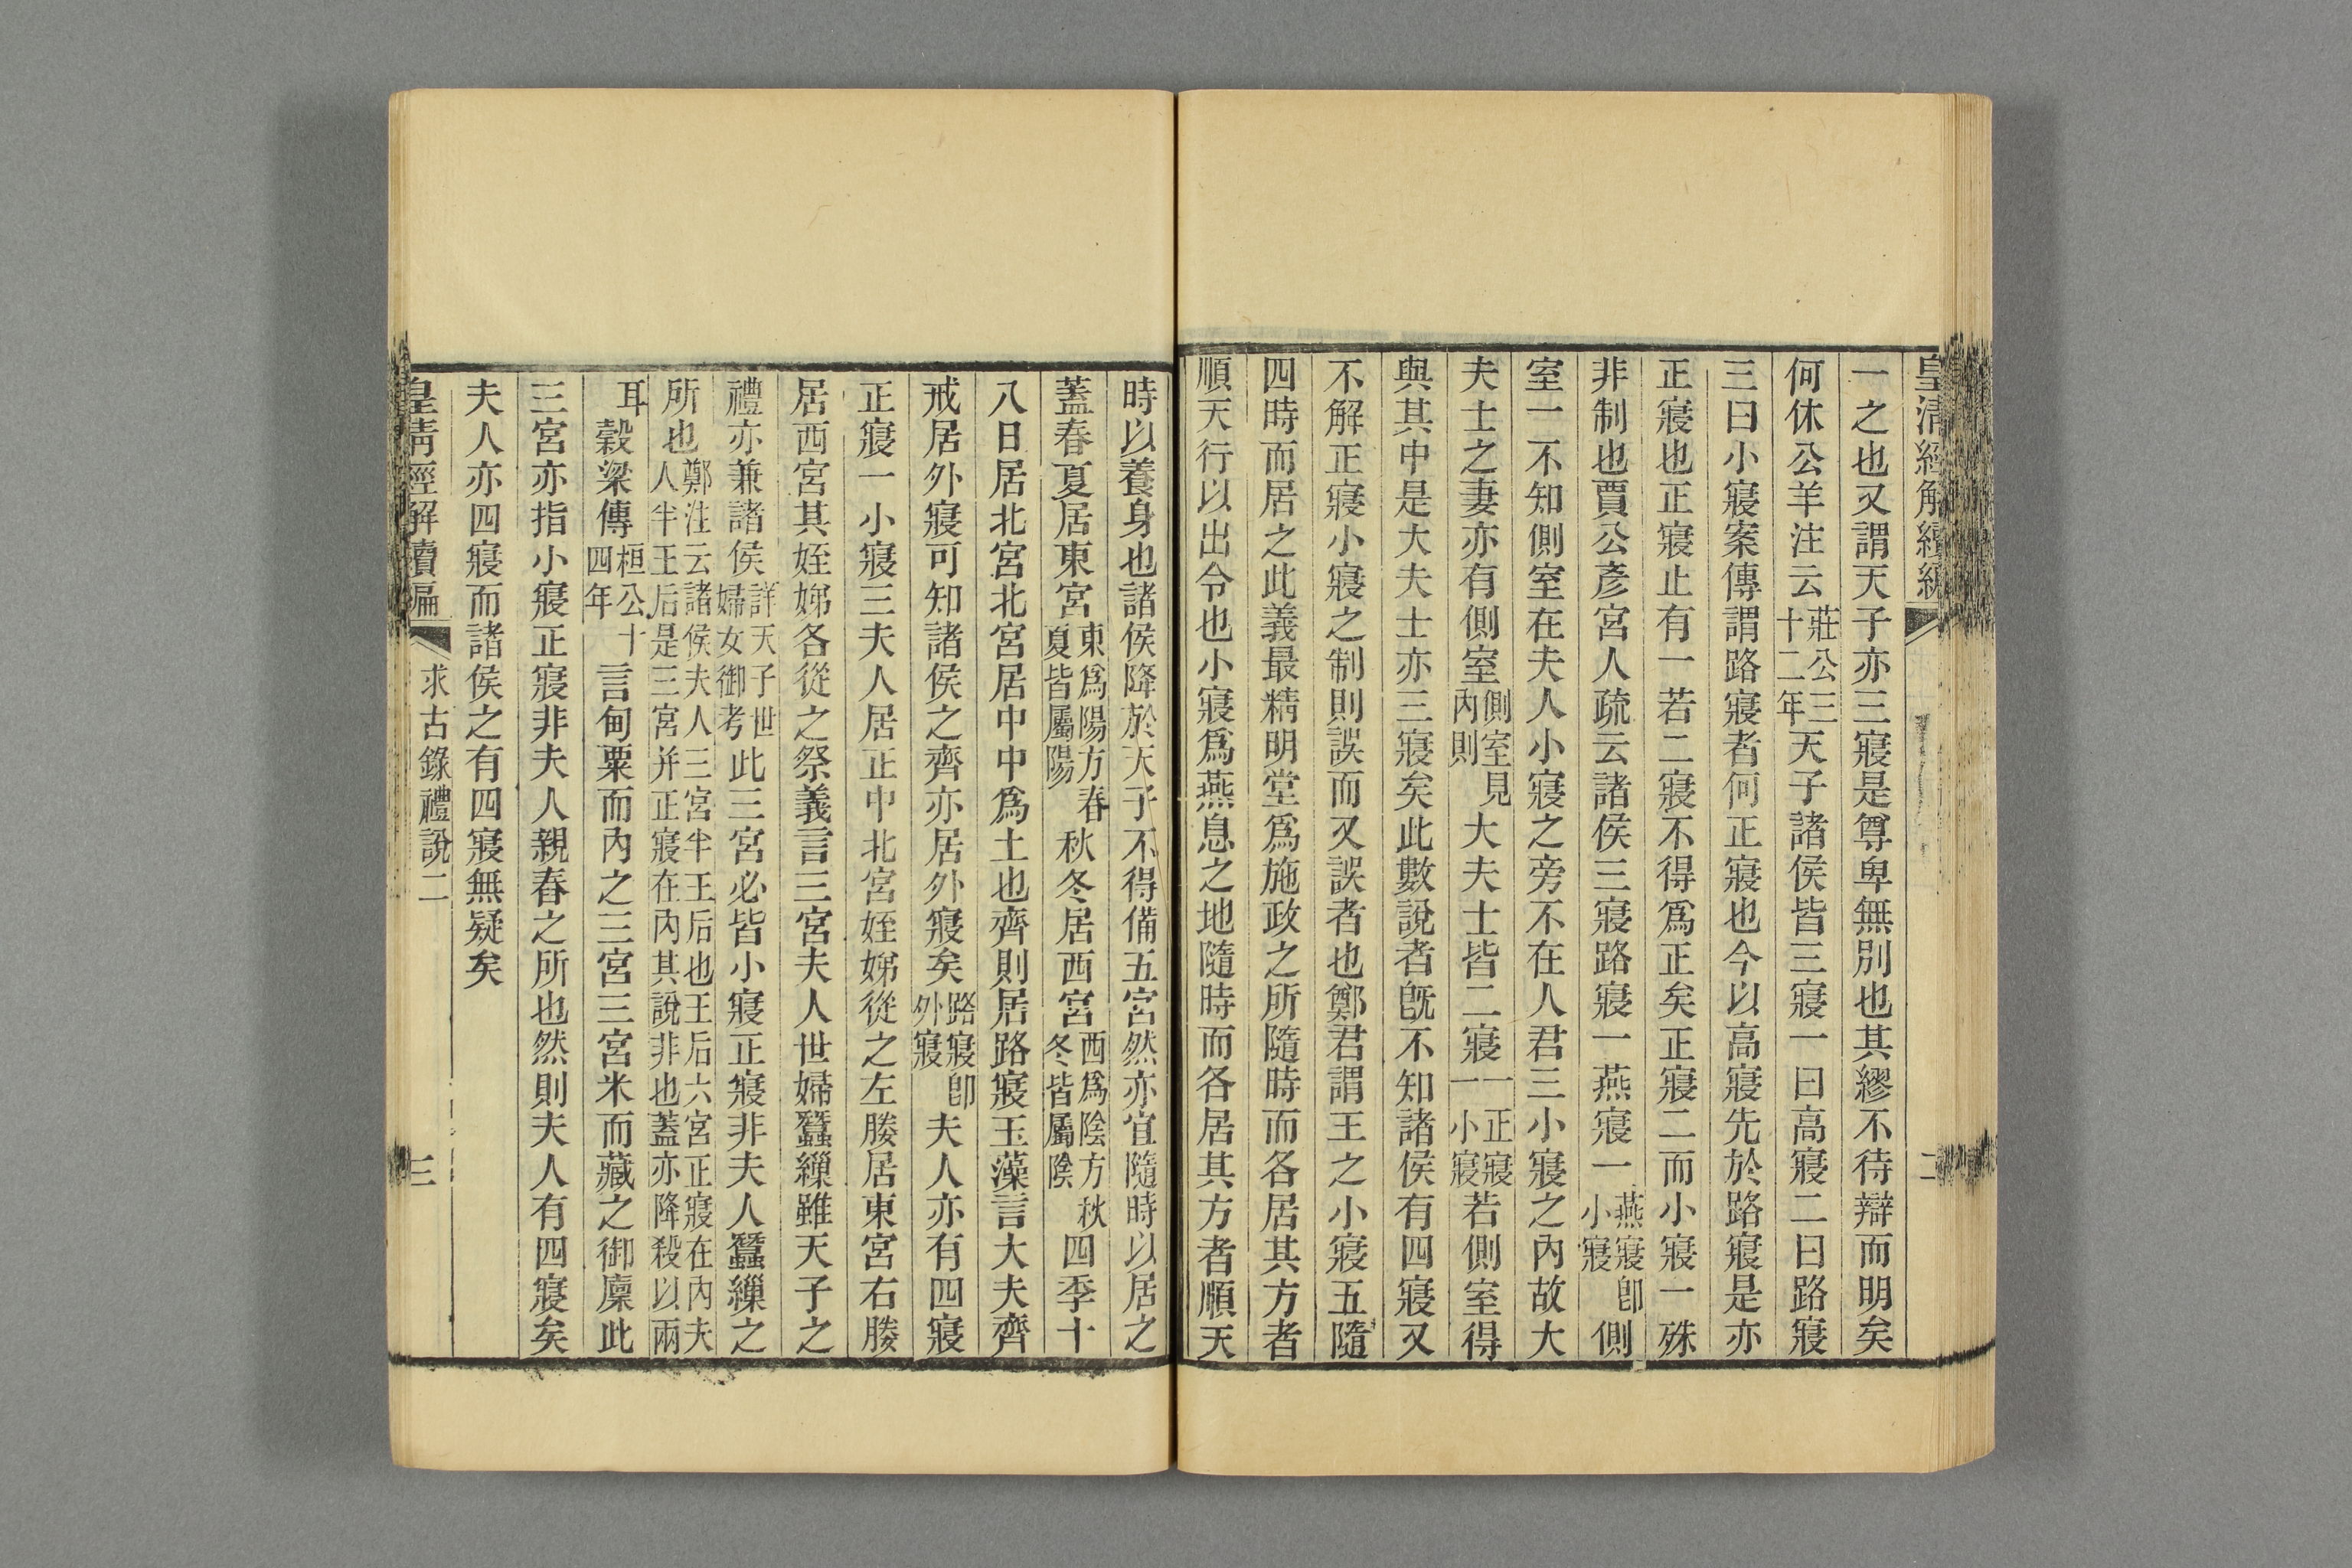 皇清經解續編 二
一之也又謂天子亦三寢是尊卑無別也其繆不待辯而明矣
何休公羊注云莊公三十二年天子諸侯皆三寢一曰高寢二曰路寢
三曰小寢案傳謂路寢者何正寢也今以高寢先於路寢是亦
正寢也正寢止有一若二寢不得爲正矣正寢二而小寢一殊
非制也賈公彥宮人疏云諸侯三寢路寢一燕寢一燕寢卽小寢側
室一不知側室在夫人小寢之旁不在人君三小寢之內故大
夫士之妻亦有側室側室見內則大夫士皆二寢一正寢一小寢若側室得
與其中是大夫士亦三寢矣此數說者旣不知諸侯有四寢又
不解正寢小寢之制則誤而又誤者也鄭君謂王之小寢五隨
四時而居之此義最精明堂爲施政之所隨時而各居其方者
順天行以出令也小寢爲燕息之地隨時而各居其方者順天
時以養身也諸侯降於天子不得備五宮然亦宜隨時以居之
蓋春夏居東宮東爲陽方春夏皆屬陽秋冬居西宮西爲陰方秋冬皆屬陰四季十
八日居北宮北宮居中中爲土也齊則居路寢玉藻言大夫齊
戒居外寢可知諸侯之齊亦居外寢矣路寢卽外寢夫人亦有四寢
正寢一小寢三夫人居正中北宮姪娣從之左媵居東宮右媵
居西宮其姪娣各從之祭義言三宮夫人世婦蠶繅雖天子之
禮亦兼諸侯詳天子世婦女御考此三宮必皆小寢正寢非夫人蠶繅之
所也鄭注云諸侯夫人三宮半王后也王后六宮正寢在內夫人半王后是三宮并正寢在內其說非也蓋亦降殺以兩
耳穀梁傳桓公十四年言甸粟而內之三宮三宮米而藏之御廩此
三宮亦指小寢正寢非夫人親舂之所也然則夫人有四寢矣
夫人亦四寢而諸侯之有四寢無疑矣
皇清經解續編 求古錄禮說二 三